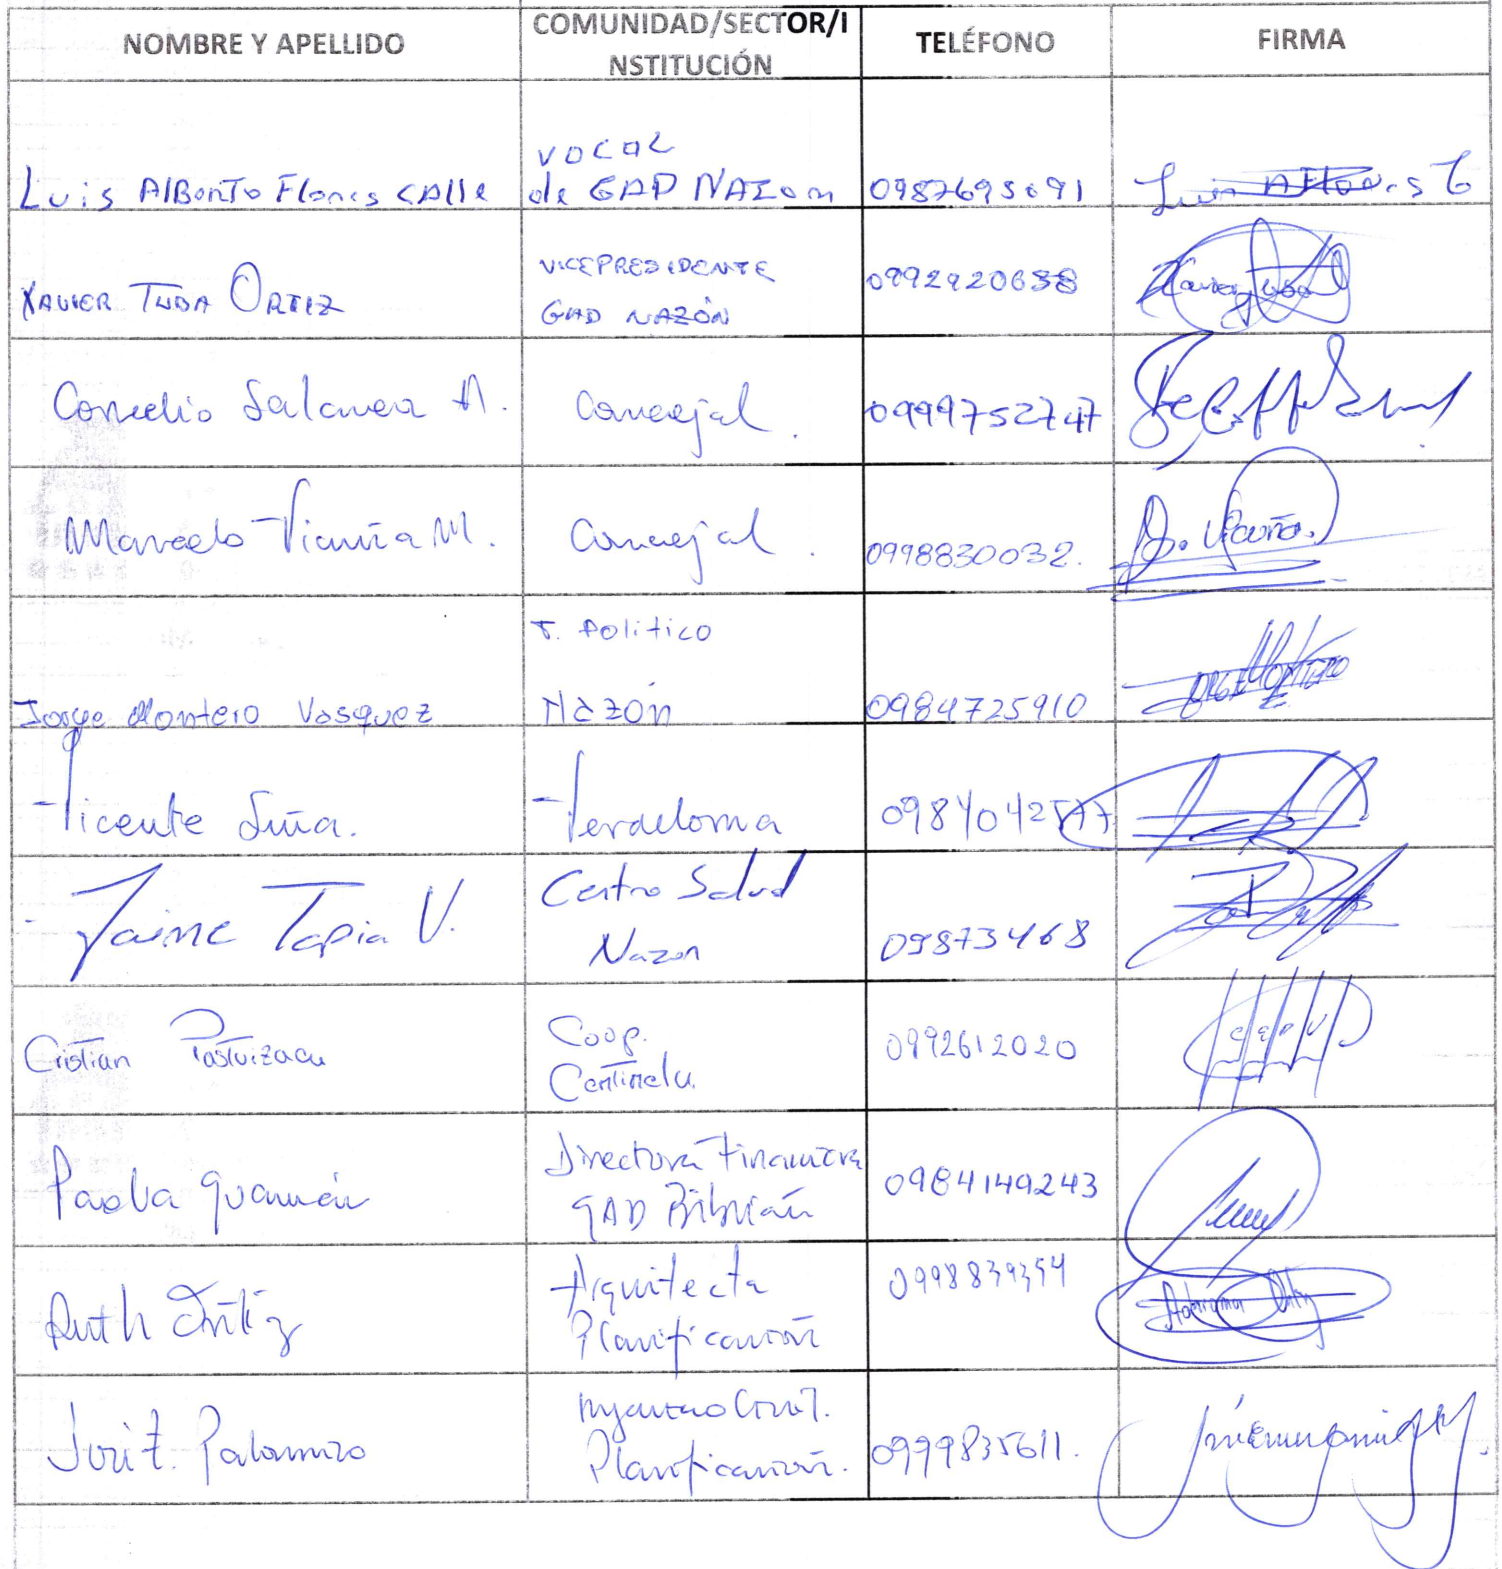 NOMBRE Y APELLIDO
COMUNIDAD/SECTOR/I
NSTITUCIÓN
TELÉFONO
FIRMA
Luis AlBerTo Flores CAlle
VOCAL
de GAD NAZon
0987695091
XAVIER TUBA ORTIZ
VICEPRESIDENTE
GAD NAZÓN
0992920638
Cornelio Salamea A.
Concejal.
0999752747
Marcelo Vicuña M.
Concejal.
0998830032.
Vicuña.
Jorge Montero Vasquez
T. Politico
Nazón
0984725910
Vicente Suña.
Verdeloma
Jaime Tapia V.
Centro Salud
Nazon
09873468
Cristian
Coop.
Centinela.
0992612020
Paola Guamán
Directora Financiera
GAD Biblián
0984149243
Ruth Ortiz
Arquitecta
Planificación
0998839354
José F. Palomino
Ingeniero Civil.
Planificación.
0999835611.